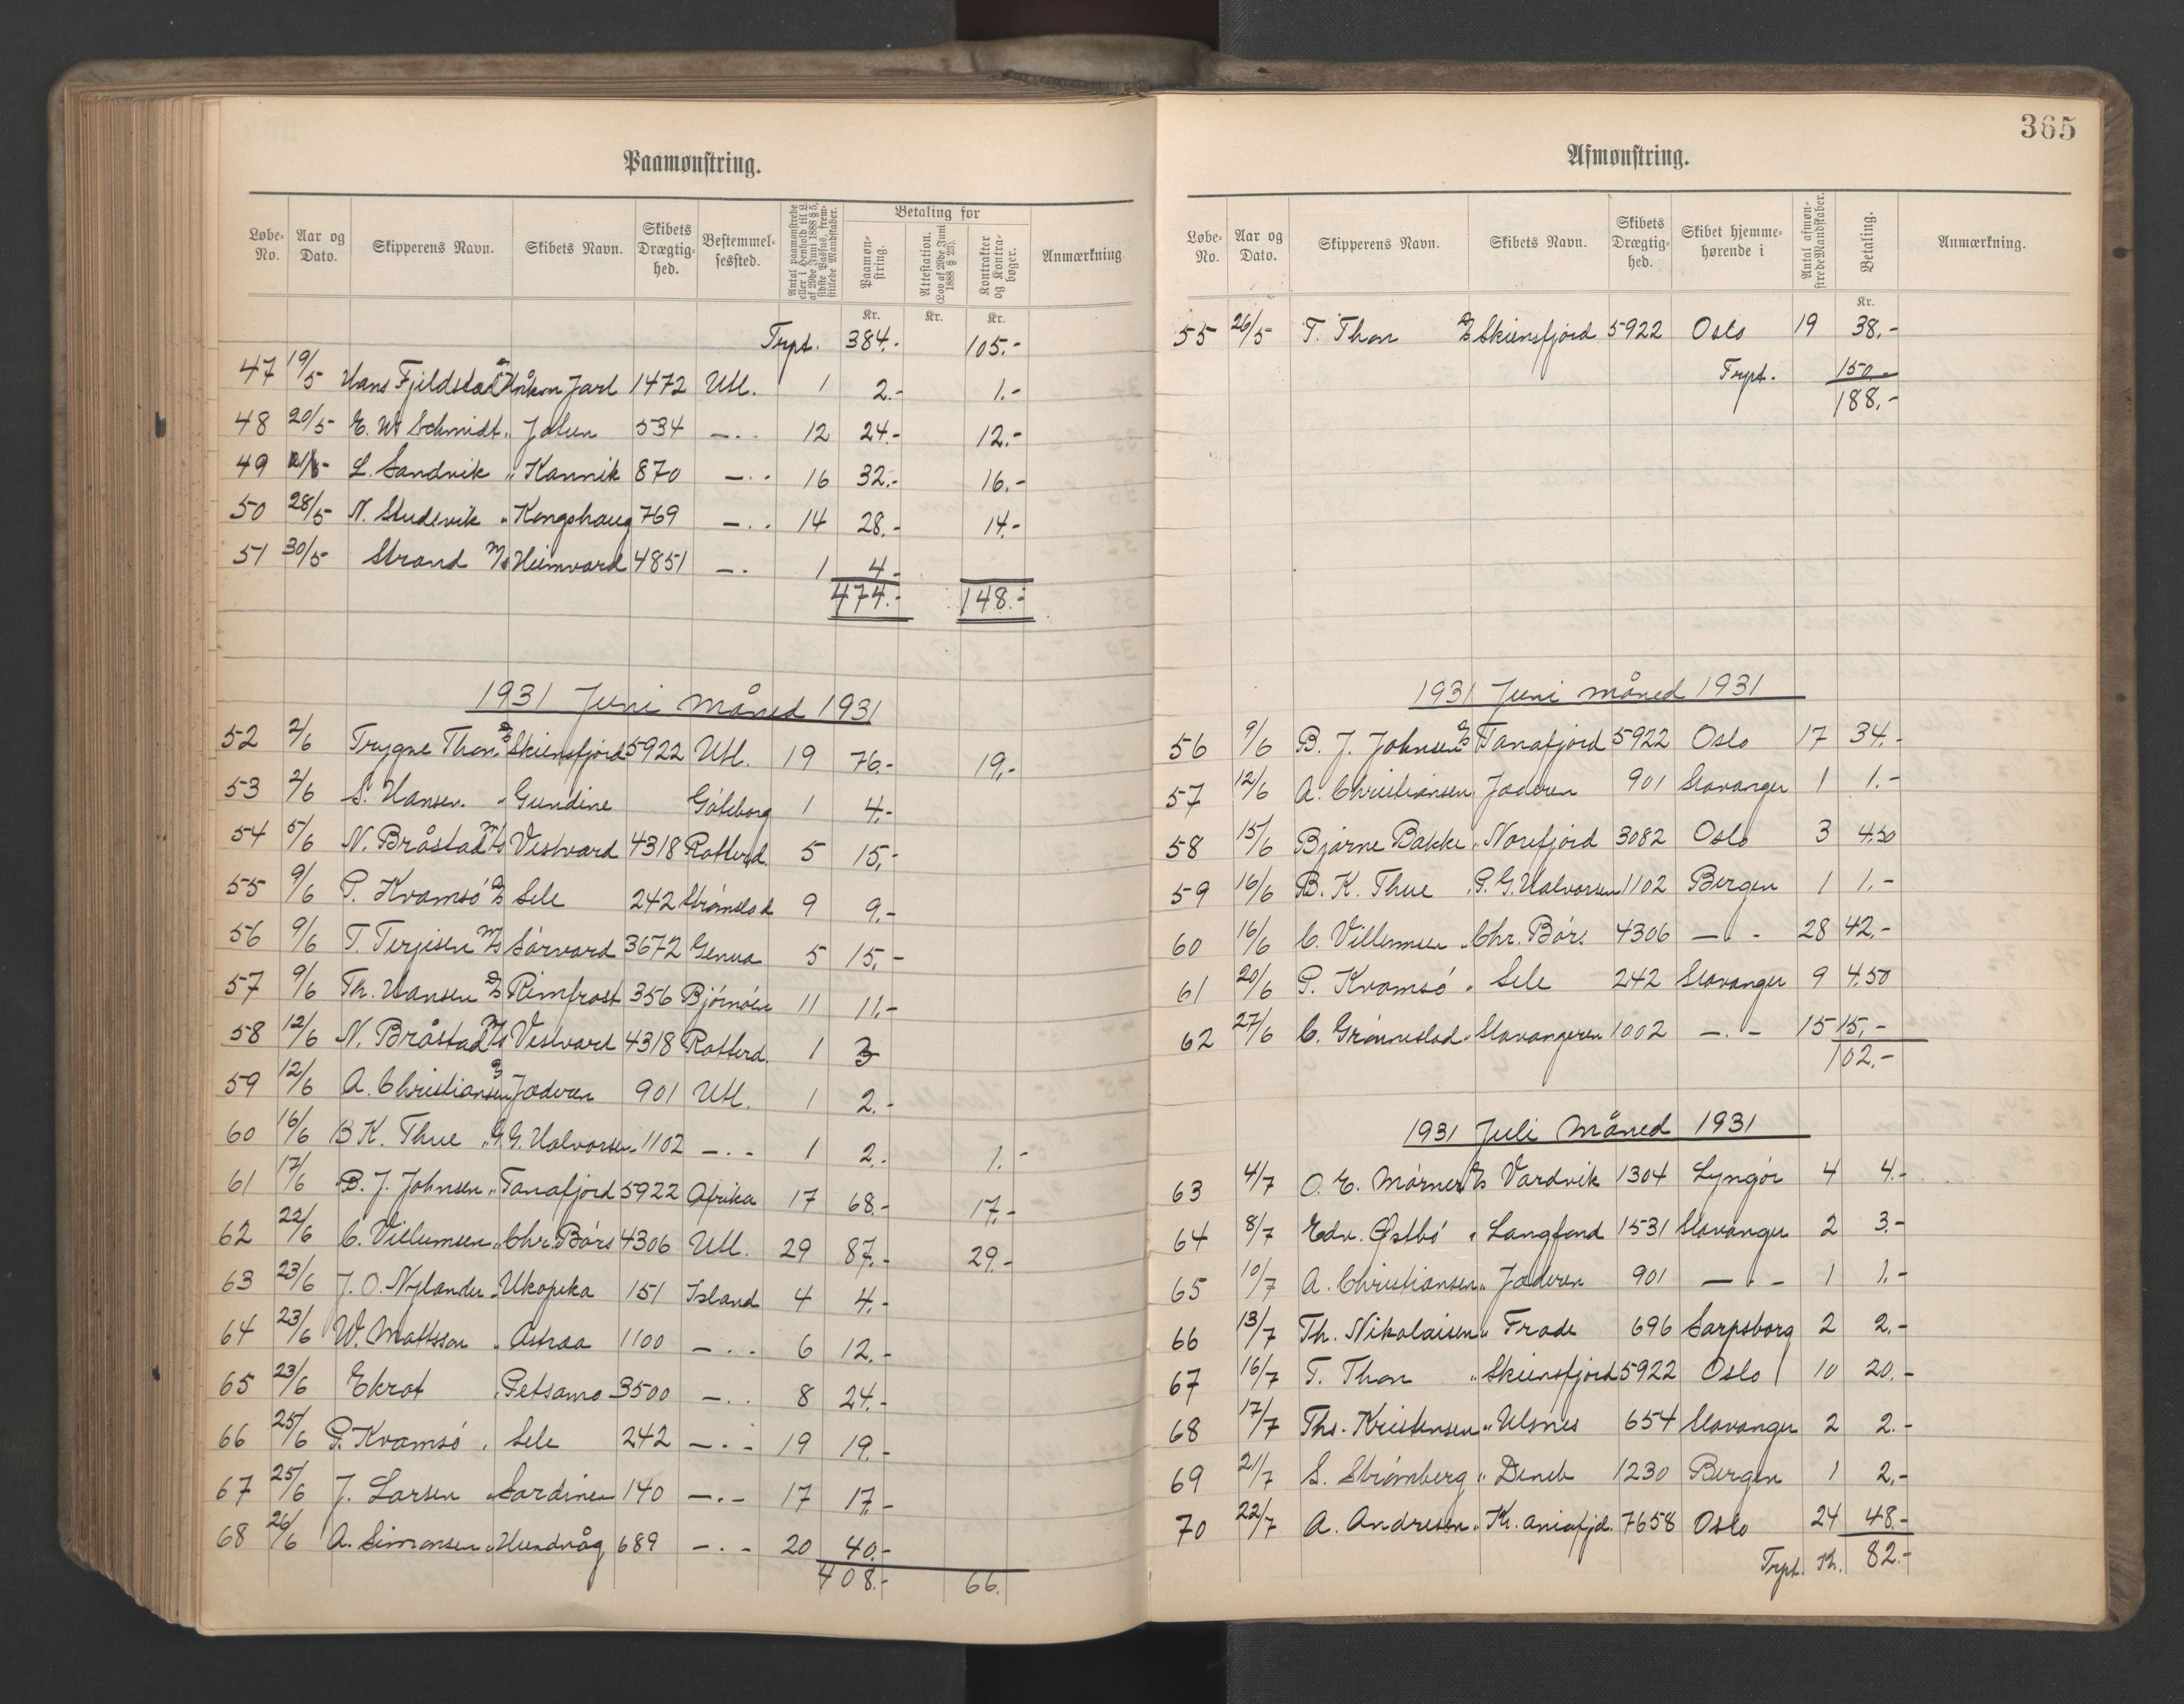 Paamønstring.
Løbe-No. Aar og Dato. Skipperens Navn. Skibets Navn. Skibets Drægtighed. Bestemmelsessted. Antal paamønstrede eller i Henhold til L. af 29de Juni 1888 § 5, sidste Passus, fremstillede Mandskaber. Betaling for Paamønstring. Attestation. (Lov af 29de Juni 1888 § 25). Kontrakter og Kontrabøger. Anmærkning
Kr. Kr. Kr.
Trpt. 384.- 105.-
47 19/5 Hans Fjeldstad D/S Håkon Jarl 1472 Utl. 1 2.- 1.-
48 20/5- E. W. Schmidt " Jolun 534 -"- 12 24.- 12.-
49 L. Sandvik " Kannik 870 -"- 16 32.- 16.-
50 28/5- N. Studevik " Kongshaug 769 -"- 14 28.- 14.-
51 30/5- Strand M/S Heimvard 4851 -"- 1 4.-
474.- 148.-
1931 Juni Måned 1931
52 2/6 Trygve Thon D/S Skiensfjord 5922 Utl. 19 76.- 19.-
53 2/6 S. Hansen " Gundine Göteborg 1 4.-
54 5/6 N. Bråstad M/S Vestvard 4318 Rotterd. 5 15.-
55 9/6 P. Kvamsö D/S Sele 242 Strömstad 9 9.-
56 9/6 T. Terjesen M/S Sörvard 3672 Genua 5 15.-
57 9/6 Th. Hansen D/S Rimfrost 356 Björnöen 11 11.-
58 12/6 N. Bråstad M/S Vestvard 4318 Rotterd. 1 3
59 12/6 A. Christiansen D/S Jæderen 901 Utl. 1 2.-
60 16/6 B K. Thue " G. G. Halvorsen 1102 -"- 1 2.- 1.-
61 17/6 B. J. Johnsen " Tanafjord 5922 Afrika 17 68.- 17.-
62 22/6 C. Villumsen " Chr. Börs 4306 Utl. 29 87.- 29.-
63 23/6 J. O. Nylander " Ukopeka 151 Island 4 4.-
64 23/6 W. Mattsson " Astraa 1100 -"- 6 12.-
65 23/6 Ekrot " Petsamo 3500 -"- 8 24.-
66 25/6 P. Kvamsö " Sele 242 -"- 19 19.-
67 25/6 J. Larsen " Sardinen 140 -"- 17 17.-
68 26/6 A. Simonsen " Hundvåg 689 -"- 20 40.-
408.- 66.
365
Afmønstring.
Løbe-No. Aar og Dato. Skipperens Navn. Skibets Navn. Skibets Drægtighed. Skibet hjemmehørende i Antal afmønstrede Mandskaber. Betaling. Anmærkning.
Kr.
55 26/5 T. Thon D/S Skiensfjord 5922 Oslo 19 38.-
Trpt. 150.-
188.-
1931 Juni måned 1931
56 9/6 B. J. Johnsen D/S Tanafjord 5922 Oslo 17 34.-
57 12/6 A. Christiansen " Jæderen 901 Stavanger 1 1.-
58 15/6 Bjarne Bakke " Norefjord 3082 Oslo 3 4.50
59 16/6 B. K. Thue " G. G. Halvorsen 1102 Bergen 1 1.-
60 16/6 C. Villumsen " Chr. Börs 4306 -"- 28 42.-
61 20/6 P. Kvamsö " Sele 242 Stavanger 9 4.50
62 27/6 C. Grönnestad " Stavangeren 1002 -"- 15 15.-
102.-
1931 Juli Måned 1931
63 4/7 O. E. Mörner D/S Vardvik 1304 Lyngör 4 4.-
64 8/7 Edv. Östbö " Langfond 1531 Stavanger 2 3.-
65 10/7 A. Christiansen " Jæderen 901 -"- 1 1.-
66 13/7 Th. Nikolaisen " Frode 696 Sarpsborg 2 2.-
67 16/7 T. Thon " Skiensfjord 5922 Oslo 10 20.-
68 17/7 Ths. Kristensen " Ulsnes 654 Stavanger 2 2.-
69 21/7 S. Strömberg " Deneb 1230 Bergen 1 2.-
70 22/7 A. Andresen " Kr. aniafjd. 7658 Oslo 24 48.-
Trpt. Kr. 82.-